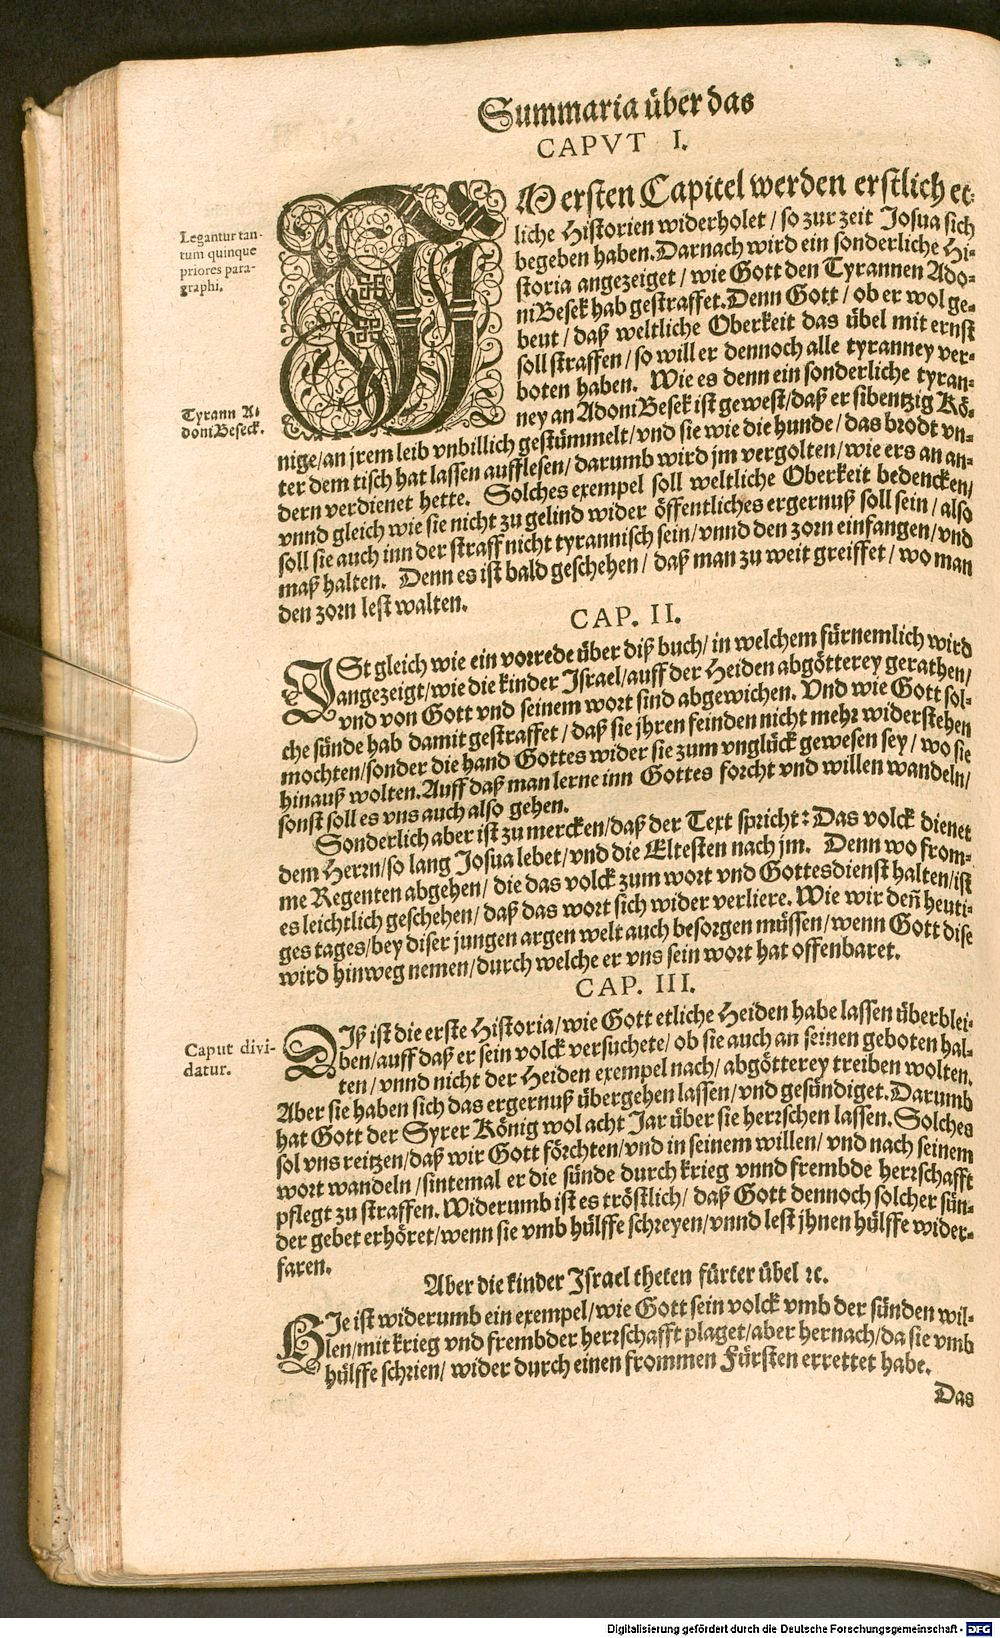 Summaria über das
CAPVT I.
IM ersten Capitel werden erstlich et-
liche Historien widerholet / so zur zeit Josua sich
begeben haben. Darnach wird ein sonderliche Hi-
storia angezeiget / wie Gott den Tyrannen Ado-
niBesek hab gestraffet. Denn Gott / ob er wol ge-
beut / daß weltliche Oberkeit das übel mit ernst
soll straffen / so will er dennoch alle tyranney ver-
boten haben. Wie es denn ein sonderliche tyran-
ney an AdoniBesek ist gewest / daß er sibentzig Kö-
nige / an jrem leib vnbillich gestümmelt / vnd sie wie die hunde / das brodt vn-
ter dem tisch hat lassen aufflesen / darumb wird jm vergolten / wie ers an an-
dern verdienet hette. Solches exempel soll weltliche Oberkeit bedencken /
vnnd gleich wie sie nicht zu gelind wider öffentliches ergernuß soll sein / also
soll sie auch inn der straff nicht tyrannisch sein / vnnd den zorn einfangen / vnd
maß halten. Denn es ist bald geschehen / daß man zu weit greiffet / wo man
den zorn lest walten.
Legantur tan-
tum quinque
priores para-
graphi.
Tyrann A-
doniBeseck.
CAP. II.
ISt gleich wie ein vorrede über diß buch / in welchem fürnemlich wird
angezeigt / wie die kinder Israel / auff der Heiden abgötterey gerathen /
vnd von Gott vnd seinem wort sind abgewichen. Vnd wie Gott sol-
che sünde hab damit gestraffet / daß sie jhren feinden nicht mehr widerstehen
mochten / sonder die hand Gottes wider sie zum vnglück gewesen sey / wo sie
hinauß wolten. Auff daß man lerne inn Gottes forcht vnd willen wandeln /
sonst soll es vns auch also gehen.
Sonderlich aber ist zu mercken / daß der Text spricht: Das volck dienet
dem Herrn / so lang Josua lebet / vnd die Eltesten nach jm. Denn wo from-
me Regenten abgehen / die das volck zum wort vnd Gottesdienst halten / ist
es leichtlich geschehen / daß das wort sich wider verliere. Wie wir deñ heuti-
ges tages / bey diser jungen argen welt auch besorgen müssen / wenn Gott dise
wird hinweg nemen / durch welche er vns sein wort hat offenbaret.
CAP. III.
Caput divi-
datur.
DIß ist die erste Historia / wie Gott etliche Heiden habe lassen überblei-
ben / auff daß er sein volck versuchete / ob sie auch an seinen geboten hal-
ten / vnnd nicht der Heiden exempel nach / abgötterey treiben wolten.
Aber sie haben sich das ergernuß übergehen lassen / vnd gesündiget. Darumb
hat Gott der Syrer König wol acht Jar über sie herrschen lassen. Solches
sol vns reitzen / daß wir Gott förchten / vnd in seinem willen / vnd nach seinem
wort wandeln / sintemal er die sünde durch krieg vnnd frembde herrschafft
pflegt zu straffen. Widerumb ist es tröstlich / daß Gott dennoch solcher sün-
der gebet erhöret / wenn sie vmb hülffe schreyen / vnnd lest jhnen hülffe wider-
faren.
Aber die kinder Israel theten fürter übel ꝛc.
HIe ist widerumb ein exempel / wie Gott sein volck vmb der sünden wil-
len / mit krieg vnd frembder herrschafft plaget / aber hernach / da sie vmb
hülffe schrien / wider durch einen frommen Fürsten errettet habe.
Das
Digitalisierung gefördert durch die Deutsche Forschungsgemeinschaft - DFG